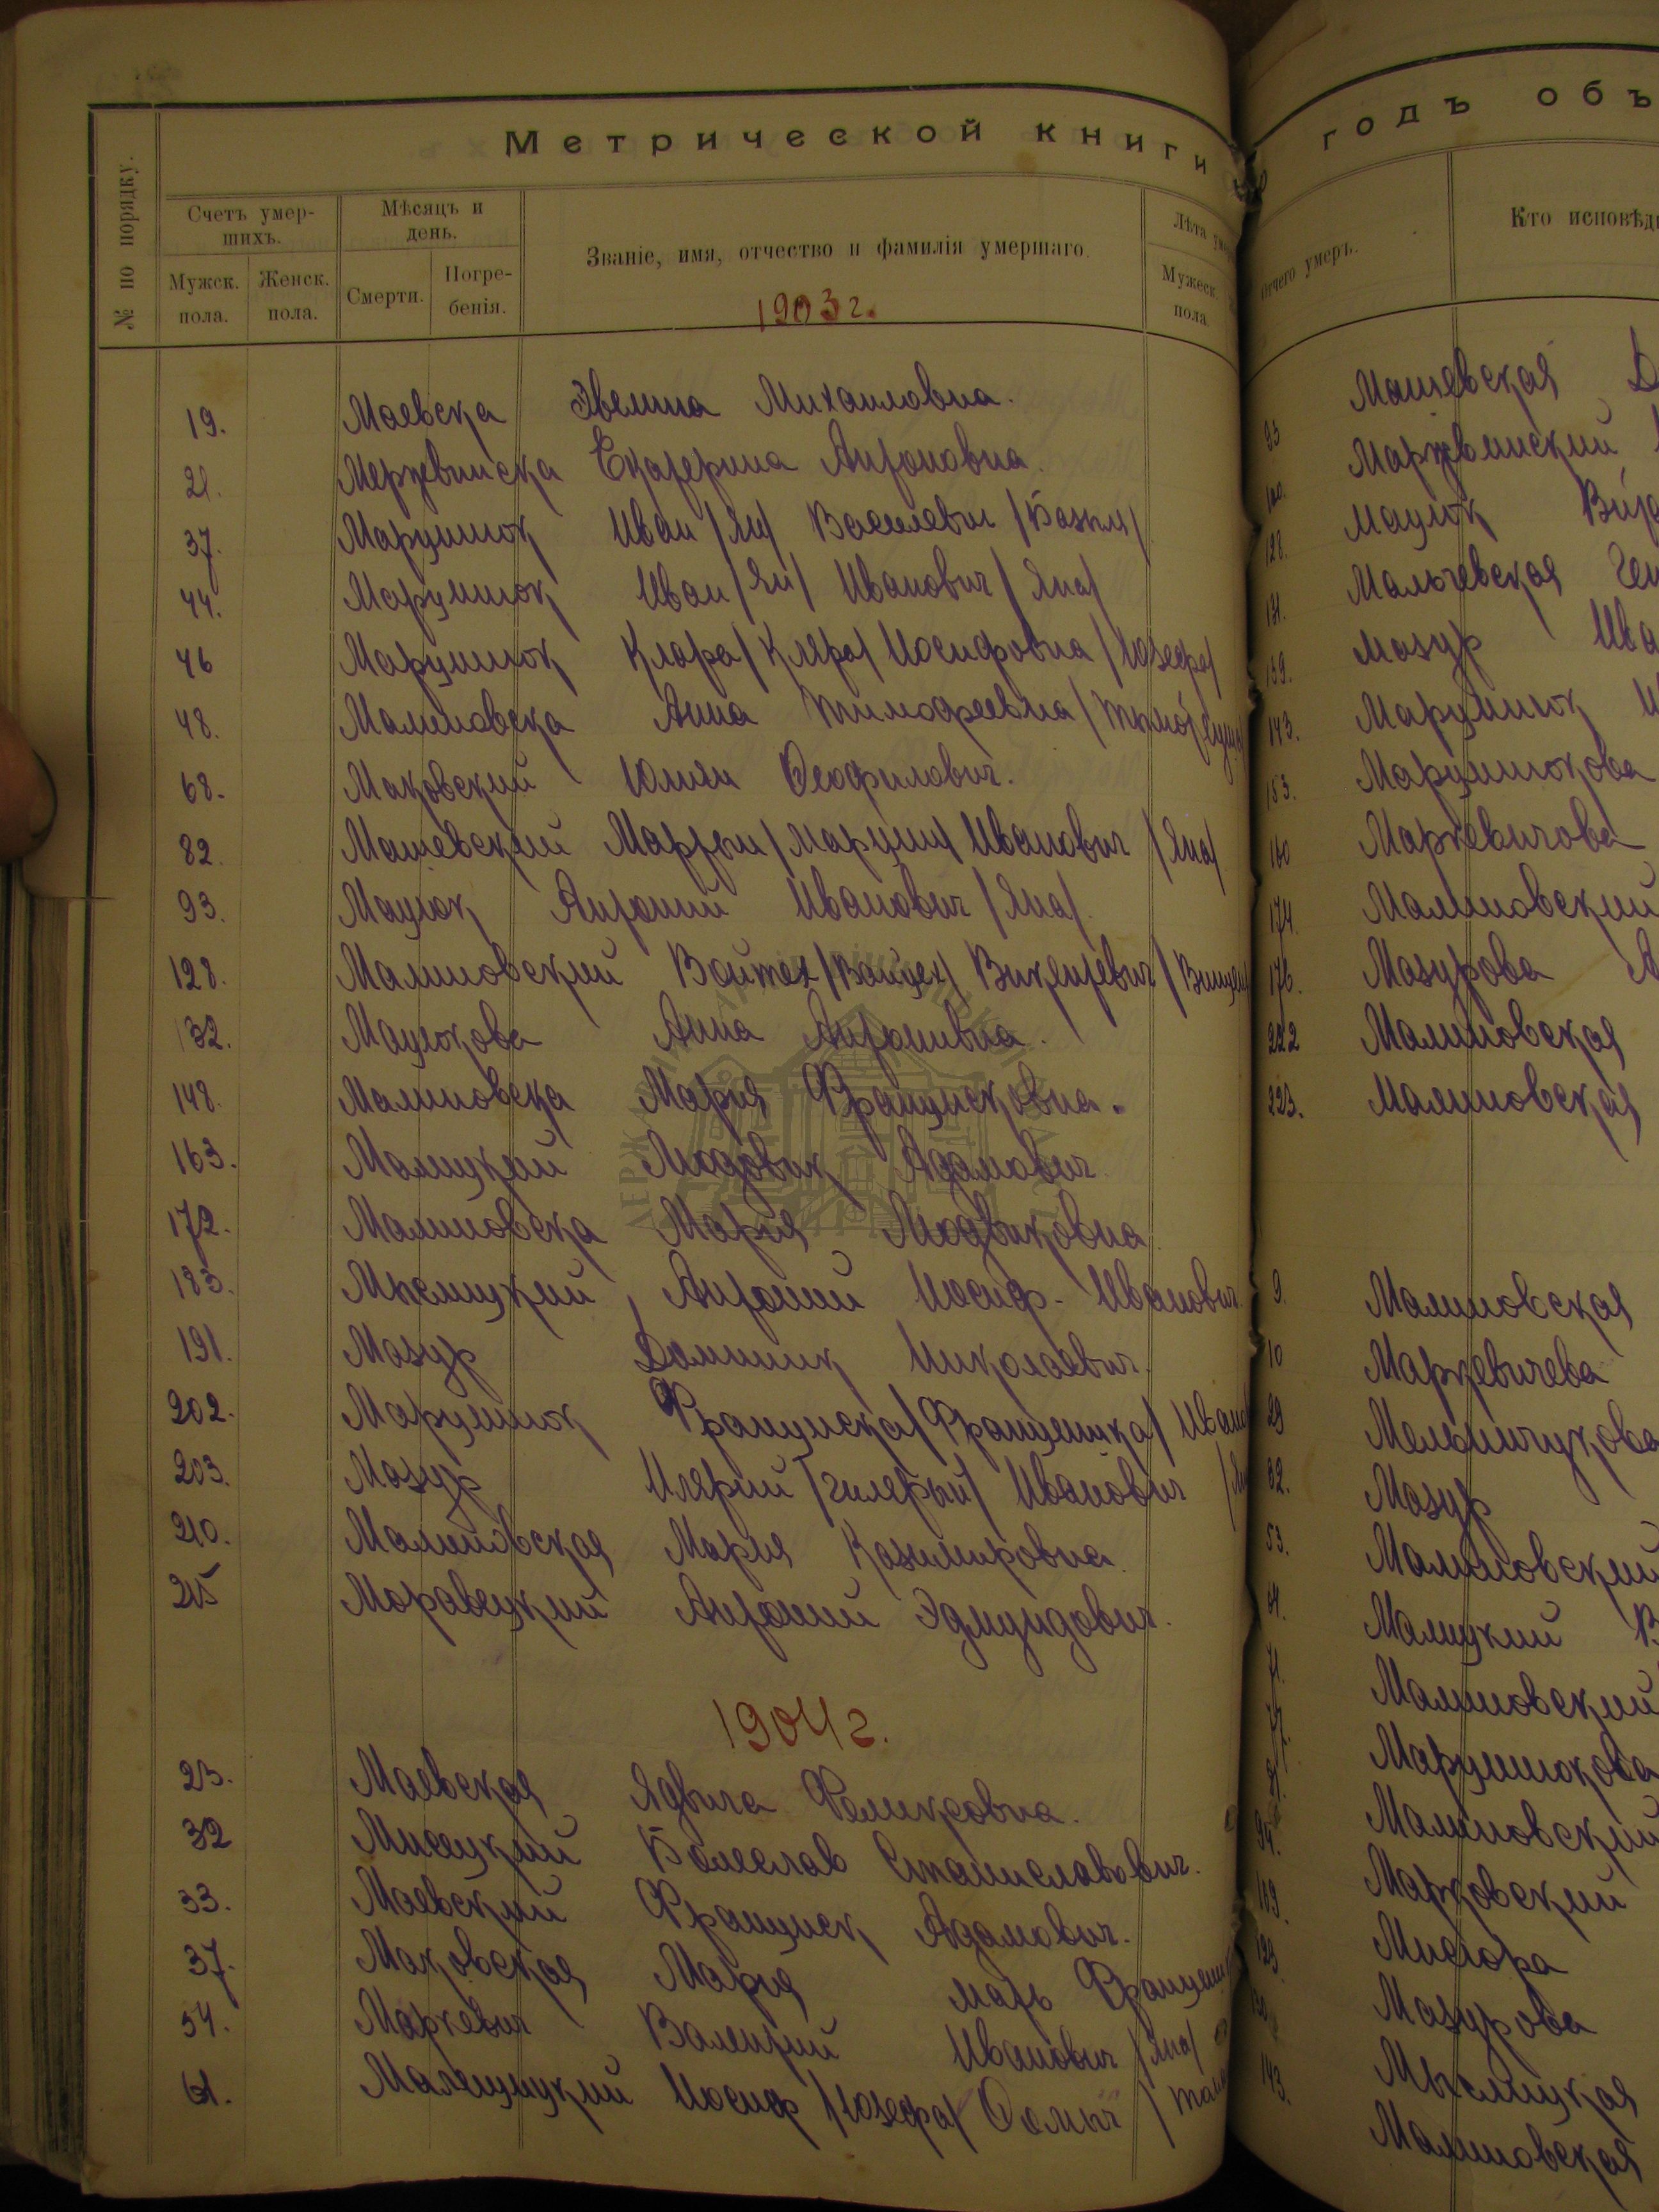 Метрической книги
№ по порядку.
Счетъ умер-
шихъ.
Мужск.
пола.
Женск.
пола.
Мѣсяцъ и
день.
Смерти.
Погре-
бенія.
Званіе, имя, отчество и фамилія умершаго.
Лѣта
Мужеск.
пола.
1903 г.
19. Маевска Эвелина Михаиловна.
21. Мержевинска Екатерина Антоновна.
37. Марцинюк Иван /Ян/ Васильевич /Базыля/
44. Марцинюк Иван /Ян/ Иванович /Яна/
46 Марцинюк Клара /Клера/ Иосифовна /Юзефа/
48. Малиновска Анна Тимофеевна
68. Маковский Юлиян Феофилович.
82. Машевский Мартын /Марцин/ Иванович /Яна/
93. Мацюк Антоний Иванович /Яна/.
128. Малиновский Войтех /Войцех/ Викентьевич
132. Мацюкова Анна Антонивна.
148. Малиновска Мария Францисковна.
163. Малицкий Людовик Адамович
172. Малиновска Мария Людвиковна
183. Мыслицкий, Антоний Иосиф. Иванович.
191. Мазур Доминик Николаевич.
202. Марцинюк Франциска /Францишка/
203. Мазур Илярий /Гилярый/ Иванович
210. Малиновская Мария Казимировна.
215 Моравецкий Антоний Эдмундович.
1904 г.
23. Маевская Ядвига Феликсовна.
32 Мисецкий Болеслав Станиславович.
33. Маевский Франциск Адамович.
37. Маковская Мария мать
54. Маркевич Валентий Иванович /Яна/
61. Малещицкий Иосиф /Юзефа/ Фомич
годъ объ
Отчего умеръ.
Кто исповѣд
93 Машевская
100. Маржвинский
128. Мацюк
131. Мальчевская
139. Мазур Ива
143. Марцинюк
153. Марцинюкова
160 Маркевичова
174. Малиновский
176. Мазурова
222 Малиновская
223. Малиновская
9. Малиновская
10 Маркевичева
29 Мельничукова
32. Мазур
53. Малиновский
Малицкий
Малиновский
Марцинюкова
Малиновский
94. Марковский
109. Мисюра
Мазурова
Мыслицкая
143. Малиновская